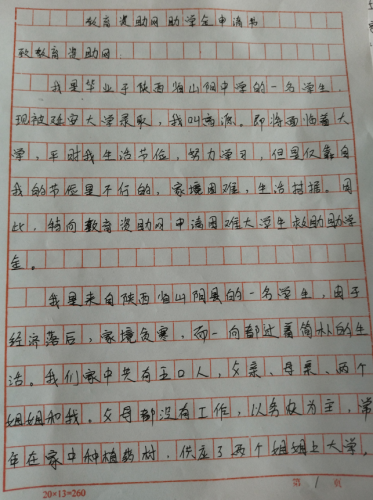 教育资助网助学金申请书
致教育资助网:
我是毕业于陕西省山阴中学的一名学生,
现被延安大学录取,我叫高源。即将面临着大
学,平时我生活节俭,努力学习,但是仅靠自
我的节俭是不行的,家境困难,生活拮据。因
此,特向教育资助网申请困难大学生救助助学
金。
我是来自陕西省山阴县的一名学生,由于
经济落后,家境贫寒,而一向都过着简朴的生
活。我们家中共有五口人,父亲、母亲、两个
姐姐和我。父母都没有工作,以务农为主,常
年在家中种植,供应了两个姐姐上大学。
20×13=260
第 1 页